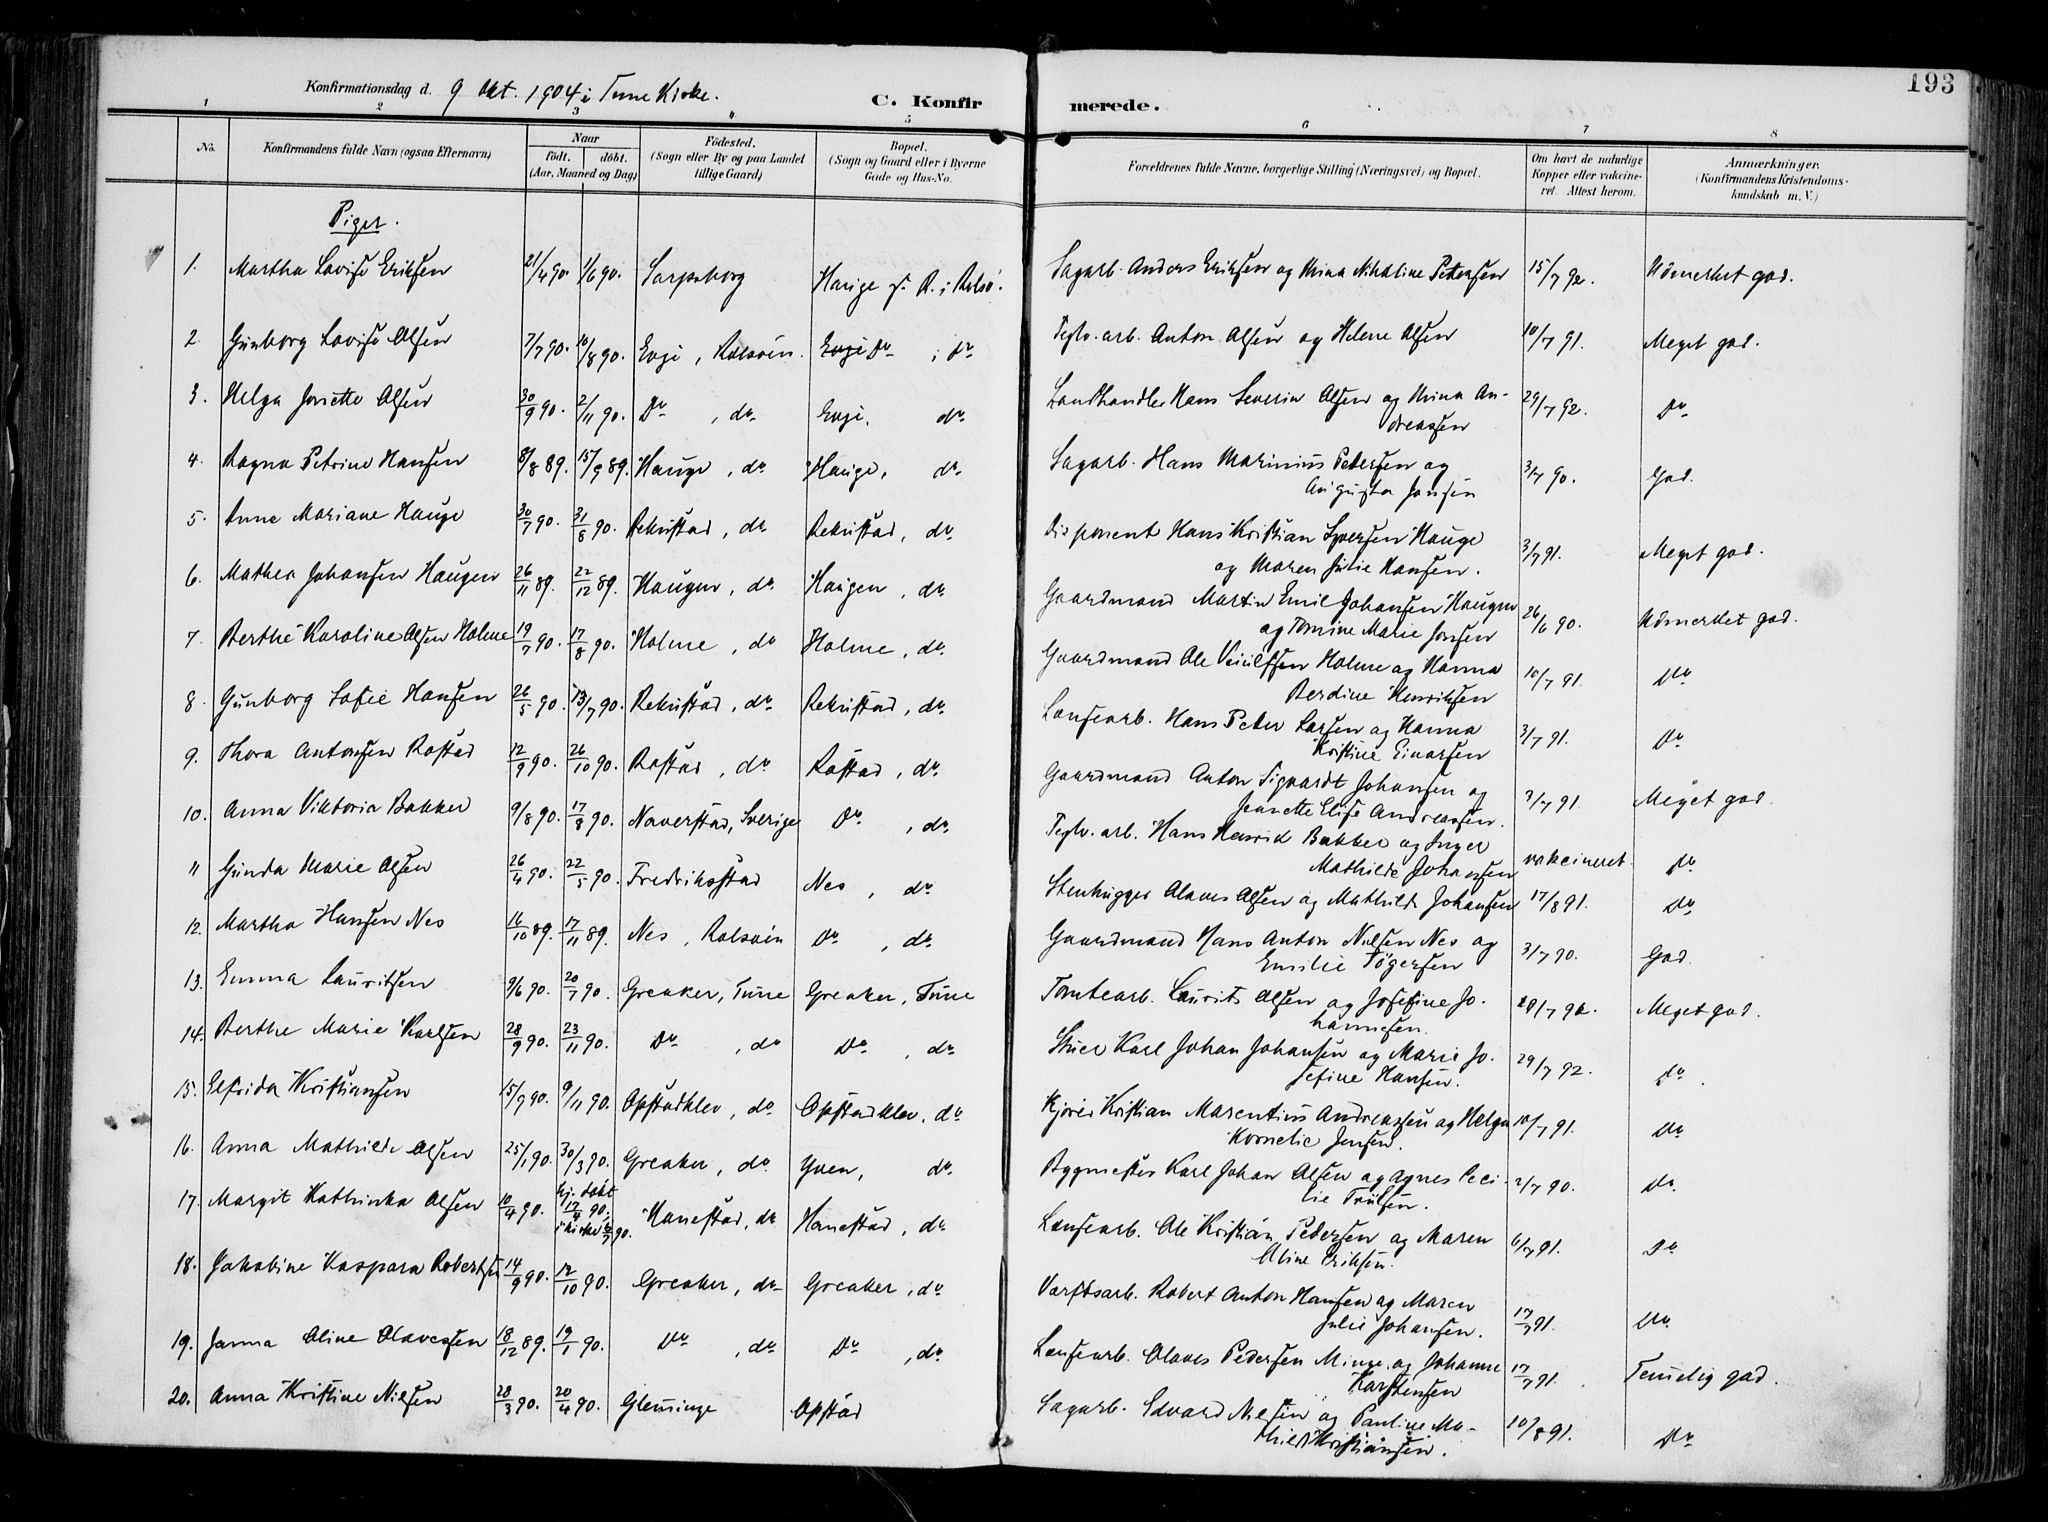 193
Konfirmationsdag d. 9 Okt. 1904 i Tune Kirke.
C. Konfirmerede.
1 2 3 4 5 6 7 8
No. Konfirmandens fulde Navn (ogsaa Efternavn) Naar födt. döbt. (Aar, Maaned og Dag) Födested. (Sogn eller By og paa Landet tillige Gaard) Bopæl. (Sogn og Gaard eller i Byerne Gade og Hus-No. Forældrenes fulde Navne, borgerlige Stilling (Næringsvei) og Bopæl. Om havt de naturlige Kopper eller vakcineret. Attest herom. Anmærkninger. (Konfirmandens Kristendomskundskab m. V.)
Piger.
1. Martha Lovise Eriksen 21/4 90. 1/6 90. Sarpsborg Hauge i Rolsö. Sagarb. Anders Eriksen og Mina Nikoline Petersen 15/7 92. Udmerket god.
2. Gunborg Lovise Olsen 7/7 90. 10/8 90. Evje, Rolsöen. Do i do Teglv. arb. Anton Olsen og Helene Olsen 10/7 91. Meget god.
3. Helga Josette Olsen 30/9 90. 2/11 90. Do, do. Evje. do. Landhandler Hans Severin Olsen og Mina Andreassen 29/7 92. Do
4. Ragna Petrine Hansen 8/8 89. 15/9 89. Hauge, do. Hauge, do. Sagarb. Hans Marinius Petersen og Augusta Jonsen 3/7 90. God.
5. Anne Mariane Hauge 30/7 90. 31/8 90. Rekustad, do. Rekustad, do. Disponent Hans Kristian Syversen Hauge og Maren Julie Hansen. 3/7 91. Meget god.
6. Mathea Johansen Haugen 26/11 89. 22/12 89. Haugen, do. Haugen, do. Gaardmand Martin Emil Johansen Haugen og Tomine Marie Jonsen 26/6 90. Udmerket god.
7. Berthe Karoline Olsen Holme 19/7 90. 17/8 90. Holme, do Holme, do. Gaardmand Ole Holme og Hanna Berdine Henriksen 10/7 91. Do
8. Gunborg Sofie Hansen 26/5 90. 13/7 90. Rekustad, do. Rekustad, do. Lensearb. Hans Peter Larsen og Hanna Kristine Einarsen 3/7 91. Do
9. Thora Antonsen Rostad 12/9 90. 26/10 90. Rostad, do Rostad, do. Gaardmand Anton Sigvardt Johansen og Jeanette Elise Andreassen. 3/7 91. Meget god.
10. Anna Viktoria Bakker 9/8 90. 17/8 90. Naverstad, Sverige Do, do. Teglv. arb. Hans Henrik Bakker og Inger Mathilde Johansen vakcineret. Do
11 Gunda Marie Olsen 26/4 90. 22/5 90. Fredriksstad Nes, do. Stenhugger Olaves Olsen og Mathilde Johansen 17/8 91. Do.
12. Martha Hansen Nes 16/10 89. 17/11 89. Nes, Rolsöen Do, do. Gaardmand Hans Anton Nielsen Nes og Emilie Tögersen 3/7 90. God.
13. Emma Lauritsen 9/6 90. 20/7 90. Greaker, Tune Greaker, Tune Tomtearb. Laurits Olsen og Josefine Johannesen. /7 Meget god.
14. Berthe Marie Karlsen 28/9 90. 23/11 90. Do, do Do, do. Stuer Karl Johan Johansen og Marie Josefine Hansen. 29/7 92. Do.
15. Elfrida Kristiansen 15/9 90. 9/11 90. Opstadklev, do. Opstadklev, do Kjörer Kristian Marentius Andreassen og Helga Kornelie Jensen. 10/7 91. Do.
16. Anna Mathilde Olsen 25/1 90. 30/3 90. Greaker, do. Yven, do. Bygmester Karl Johan Olsen og Agnes Cecilie Trulsen. 2/7 90. Do.
17. Margit Kathinka Olsen 10/4 90. Hj. döbt 17/4 90; i kirke /7 90. Hanestad, do Hanestad, do. Lensearb. Ole Kristian Pedersen og Maren Oline Eriksen. 6/7 91. Do
18. Jakobine Kaspara Robertsen 14/9 90. 12/10 90. Greaker, do Greaker, do Værftsarb. Robert Anton Hansen og Maren Julie Johansen. 17/7 91. Do.
19. Janna Oline Olavessen 18/12 89. 19/1 90. Do, do. Do, do. Lensearb. Olaves Pedersen Minge og Johanne Karstensen 17/7 91. Temelig god.
20. Anna Kristine Nilsen 28/3 90. 20/4 90. Glemminge Opstad Sagarb. Edvard Nilsen og Pauline Mathilde Kristiansen. 10/8 91. Do